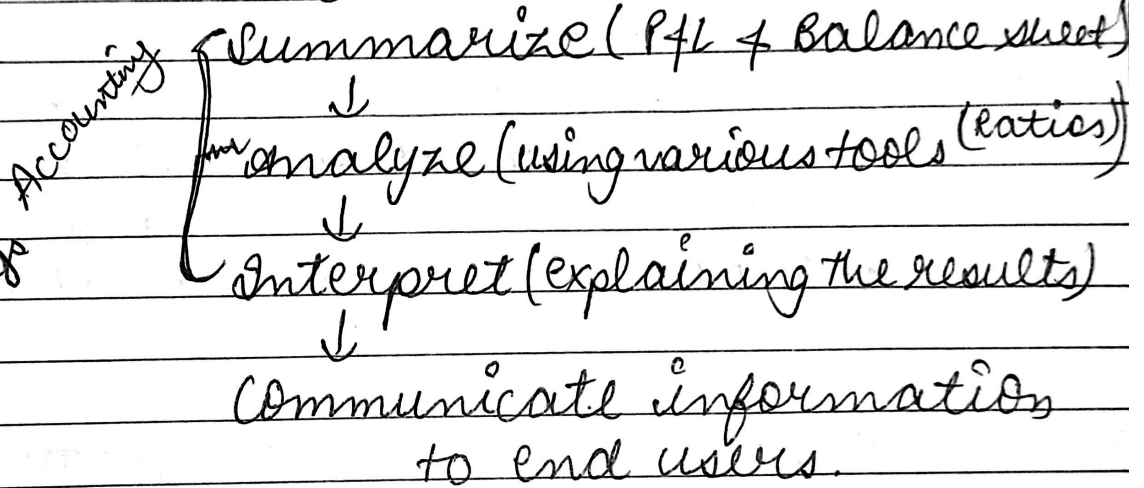 Summarize (P&L & Balance sheet)
↓
analyze (using various tools (Ratios))
↓
Interpret (explaining the results)
↓
Communicate information
to end users.
Accounting